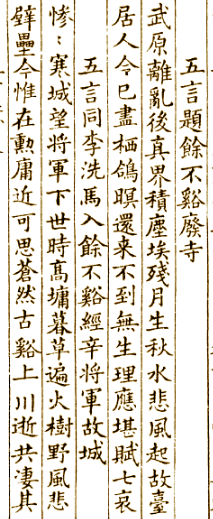 五言題餘不谿廢寺
武原離亂後真界積塵埃殘月生秋水悲風起故臺
居人今巳盡栖鴿暝還来不到無生理應堪賦七哀
五言同李洗馬入餘不谿經辛將軍故城
慘〻寒城望將軍下世時髙墉暮草遍火樹野風悲
壁壘今惟在勲庸近可思蒼然古谿上川逝共淒其